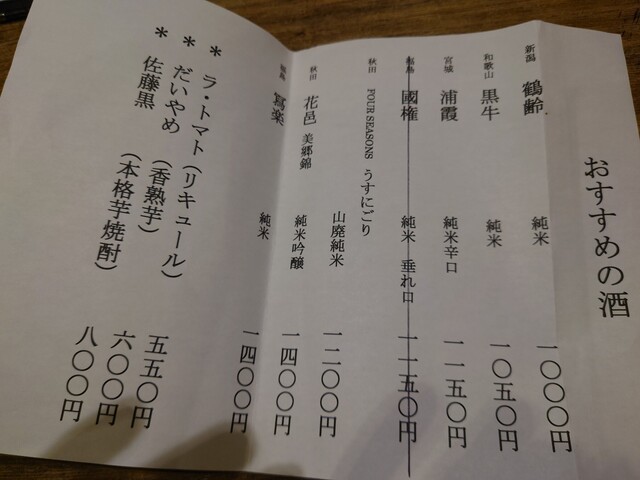 おすすめの酒
新潟 鶴齢 純米 一〇〇〇円
和歌山 黒牛 純米 一〇五〇円
宮城 浦霞 純米辛口 一一五〇円
福島 國権 純米 垂れ口 一一五〇円
秋田 FOUR SEASONS うすにごり 山廃純米 一二〇〇円
秋田 花邑 美郷錦 純米吟醸 一四〇〇円
福島 冩楽 純米 一四〇〇円
* ラ・トマト(リキュール) 五五〇円
* だいやめ (香熟芋) 六〇〇円
* 佐藤黒 (本格芋焼酎) 八〇〇円